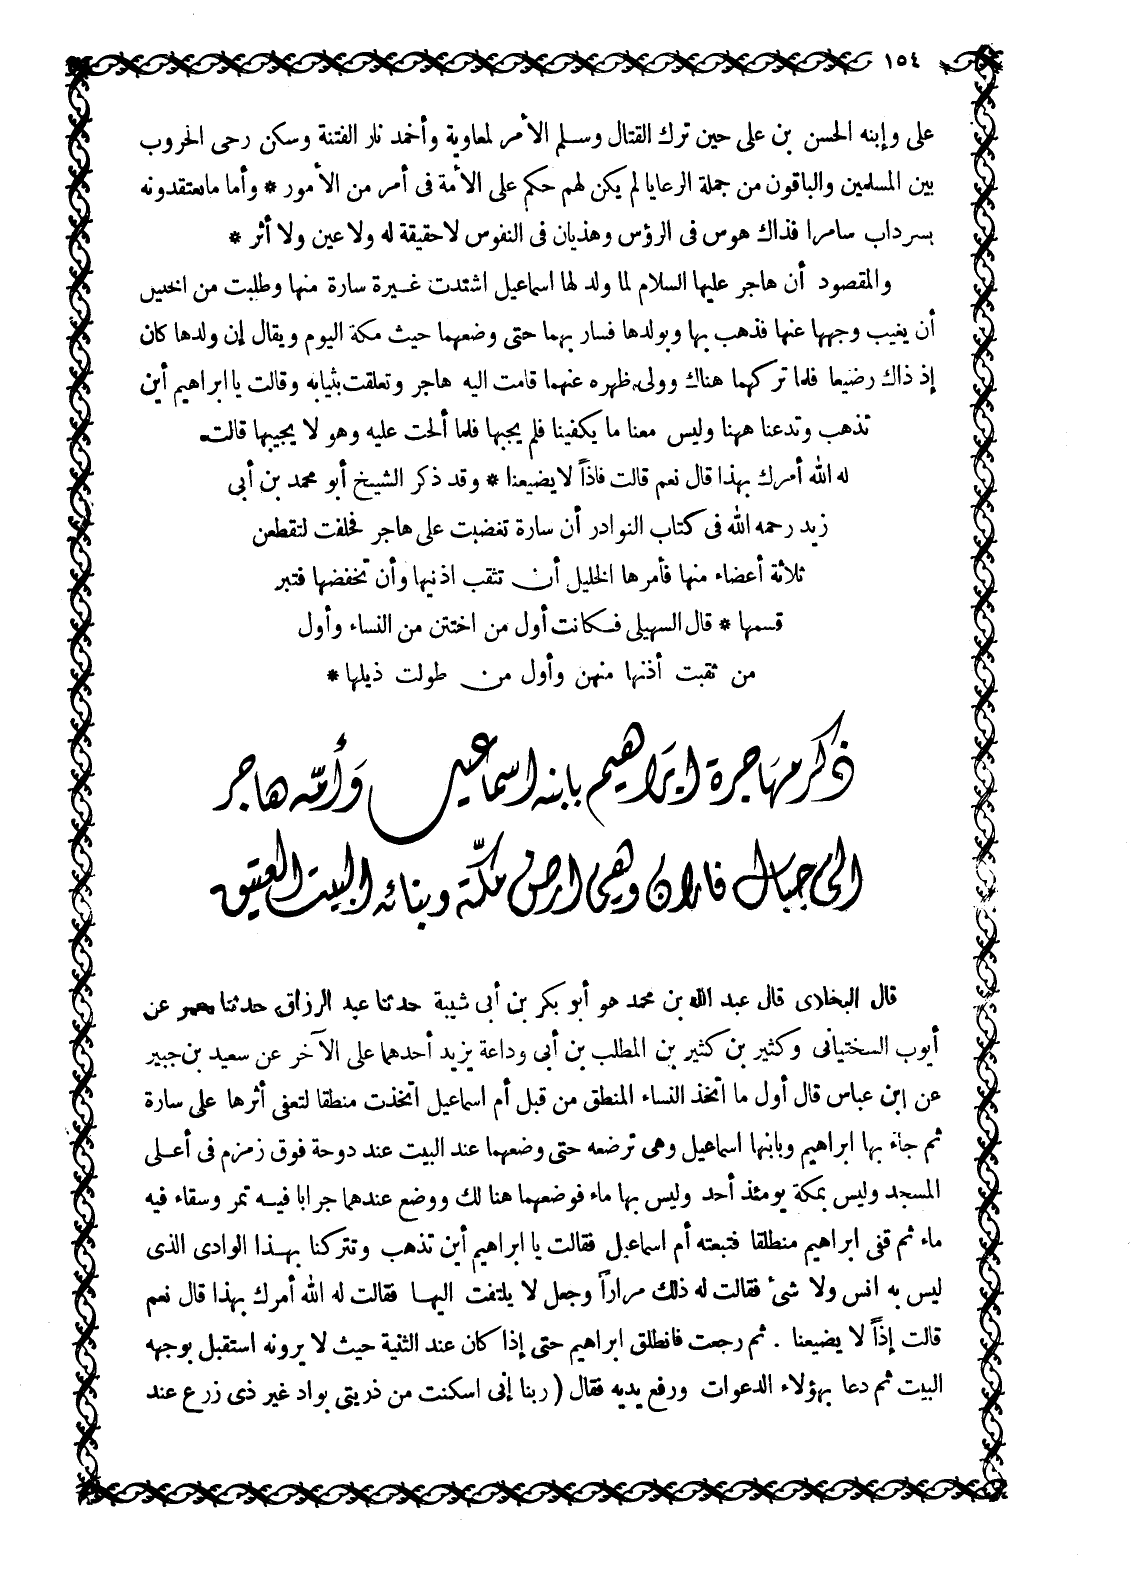 ١٥٤
على وإبنه الحسن بن على حين ترك القتال وسلم الأمر لمعاوية وأخمد نار الفتنة وسكن رحى الحروب
بين المسلمين والباقون من جملة الرعايا لم يكن لهم حكم على الأمة فى أمر من الأمور * وأما ما يعتقدونه
بسرداب سامرا فذاك هوس فى الرؤس وهذيان فى النفوس لا حقيقة له ولا عين ولا أثر *
والمقصود أن هاجر عليها السلام لما ولد لها اسماعيل اشتدت غيرة سارة منها وطلبت من الخليل
أن يغيب وجهها عنها فذهب بها وبولدها فسار بهما حتى وضعهما حيث مكة اليوم ويقال إن ولدها كان
إذ ذاك رضيعا فلما تركهما هناك وولى ظهره عنهما قامت اليه هاجر وتعلقت بثيابه وقالت يا ابراهيم أين
تذهب وتدعنا ههنا وليس معنا ما يكفينا فلم يجبها فلما ألحت عليه وهو لا يجيبها قالت
له الله أمرك بهذا قال نعم قالت فاذاً لا يضيعنا * وقد ذكر الشيخ أبو محمد بن أبى
زيد رحمه الله فى كتاب النوادر أن سارة تغضبت على هاجر فحلفت لتقطعن
ثلاثة أعضاء منها فأمرها الخليل أن تثقب اذنيها وأن تخفضها فتبر
قسمها * قال السهيلى فكانت أول من اختتن من النساء وأول
من ثقبت أذنها منهن وأول من طولت ذيلها *
ذكر مهاجرة ابراهيم بابنه اسماعيل وأمه هاجر
الى جبال فاران وهى ارض مكة وبنائه البيت العتيق
قال البخارى قال عبد الله بن محمد هو أبو بكر بن أبى شيبة حدثنا عبد الرزاق حدثنا معمر عن
أيوب السختيانى وكثير بن كثير بن المطلب بن أبى وداعة يزيد أحدهما على الآخر عن سعيد بن جبير
عن ابن عباس قال أول ما اتخذ النساء المنطق من قبل أم اسماعيل اتخذت منطقا لتعفى أثرها على سارة
ثم جاء بها ابراهيم وبابنها اسماعيل وهى ترضعه حتى وضعهما عند البيت عند دوحة فوق زمزم فى أعلى
المسجد وليس بمكة يومئذ أحد وليس بها ماء فوضعهما هنا لك ووضع عندهما جرابا فيه تمر وسقاء فيه
ماء ثم قفى ابراهيم منطلقا فتبعته أم اسماعيل فقالت يا ابراهيم أين تذهب وتتركنا بهذا الوادى الذى
ليس به انس ولا شئ فقالت له ذلك مراراً وجعل لا يلتفت اليها فقالت له الله أمرك بهذا قال نعم
قالت إذاً لا يضيعنا . ثم رجعت فانطلق ابراهيم حتى إذا كان عند الثنية حيث لا يرونه استقبل بوجهه
البيت ثم دعا بهؤلاء الدعوات ورفع يديه فقال ( ربنا إنى اسكنت من ذريتى بواد غير ذى زرع عند